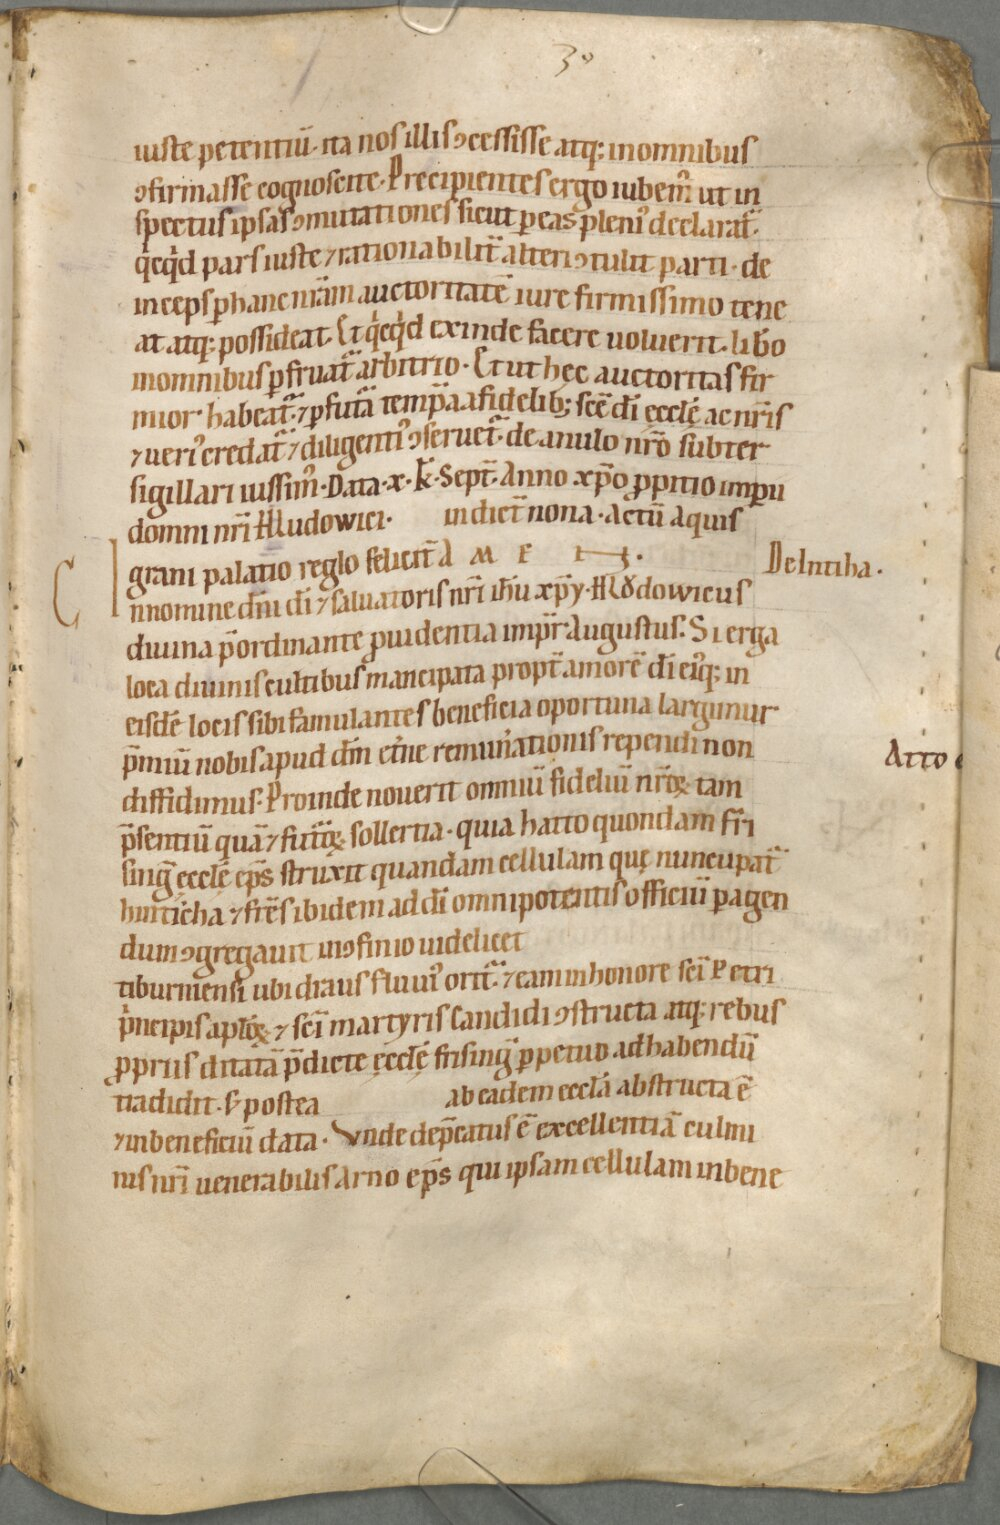 30
iuste petentiū· ita nos illis ꝯcessisse atq; in omnibus
ꝯfirmasse cognoscite· Precipientes ergo iubem᷒ ut in
spectus ipsas ꝯmutationes sicut ꝑ eas pleni᷒ declarat᷑·
qͥcqͥd pars iuste ⁊ rationabilit᷑ alteri ꝯtulit parti· de
inceps ꝑ hanc nr̄am auctoritatē iure firmissimo tene
at atq; possideat· Et qͥcqͥd exinde facere uoluerit· libo
in omnibus ꝑfruat᷑ arbitrio· Et ut hec auctoritas fir
mior habeat᷑· ⁊ ꝑ futᷓa tempᷓa a fidelib; scē dī ęcclę̄ ac nr̄is
⁊ ueri᷒ credat᷑ ⁊ diligenti᷒ ꝯseruet᷑· de anulo nr̄o subter
sigillari iussim᷒· Data· x· k̄· Sept̄· Anno xp̄o ꝓpitio imꝑii
domni nr̄i Hludowici· indict̄ nona· Actū Aquis
grani palatio reglo felicit᷑ A M E N·
De Intiha·
C
Innomine dn̄i dī ⁊ saluatoris nr̄i ih̄u xp̄y· Hlodowicus
diuina p̄ordinante ꝓuidentia impr̄ Augustus· Si erga
loca diuinis cultibus mancipata propt᷑ amorē dī eiꝰq; in
eisdē locis sibi famulantes beneficia oportuna largimur
p̄miū nobis apud dm̄ et᷑ne remun᷑ationis rependi non
Atto
diffidimus· Proinde nouerit omniū fideliū nr̄oꝝ tam
p̄sentiū quā ⁊ futᷓoꝝ sollertia· quia hatto quondam fri
sinḡ ęcclę̄ ep̄s struxit quandam cellulam quę nuncupat᷑
hinticha ⁊ fr̄es ibidem ad dī omnipotentis officiū ꝑagen
dum ꝯgregauit in ꝯfinio uidelicet
tiburniensi ubi draus fluui᷒ orit᷑· ⁊ eam in honore scī Petri
pͥncipis aplōꝝ ⁊ scī martyris Candidi ꝯstructa atq; rebus
ꝓpriis ditatā p̄dicte ęcclę̄ frisinḡ ꝑpetuo ad habendū
tradidit· S; postea ab eadem ecclā abstructa ē
⁊ in beneficiū data· Vnde dep̄catus ē excellentiā culmi
nis nr̄i uenerabilis Arno ep̄s qui ipsam cellulam in bene